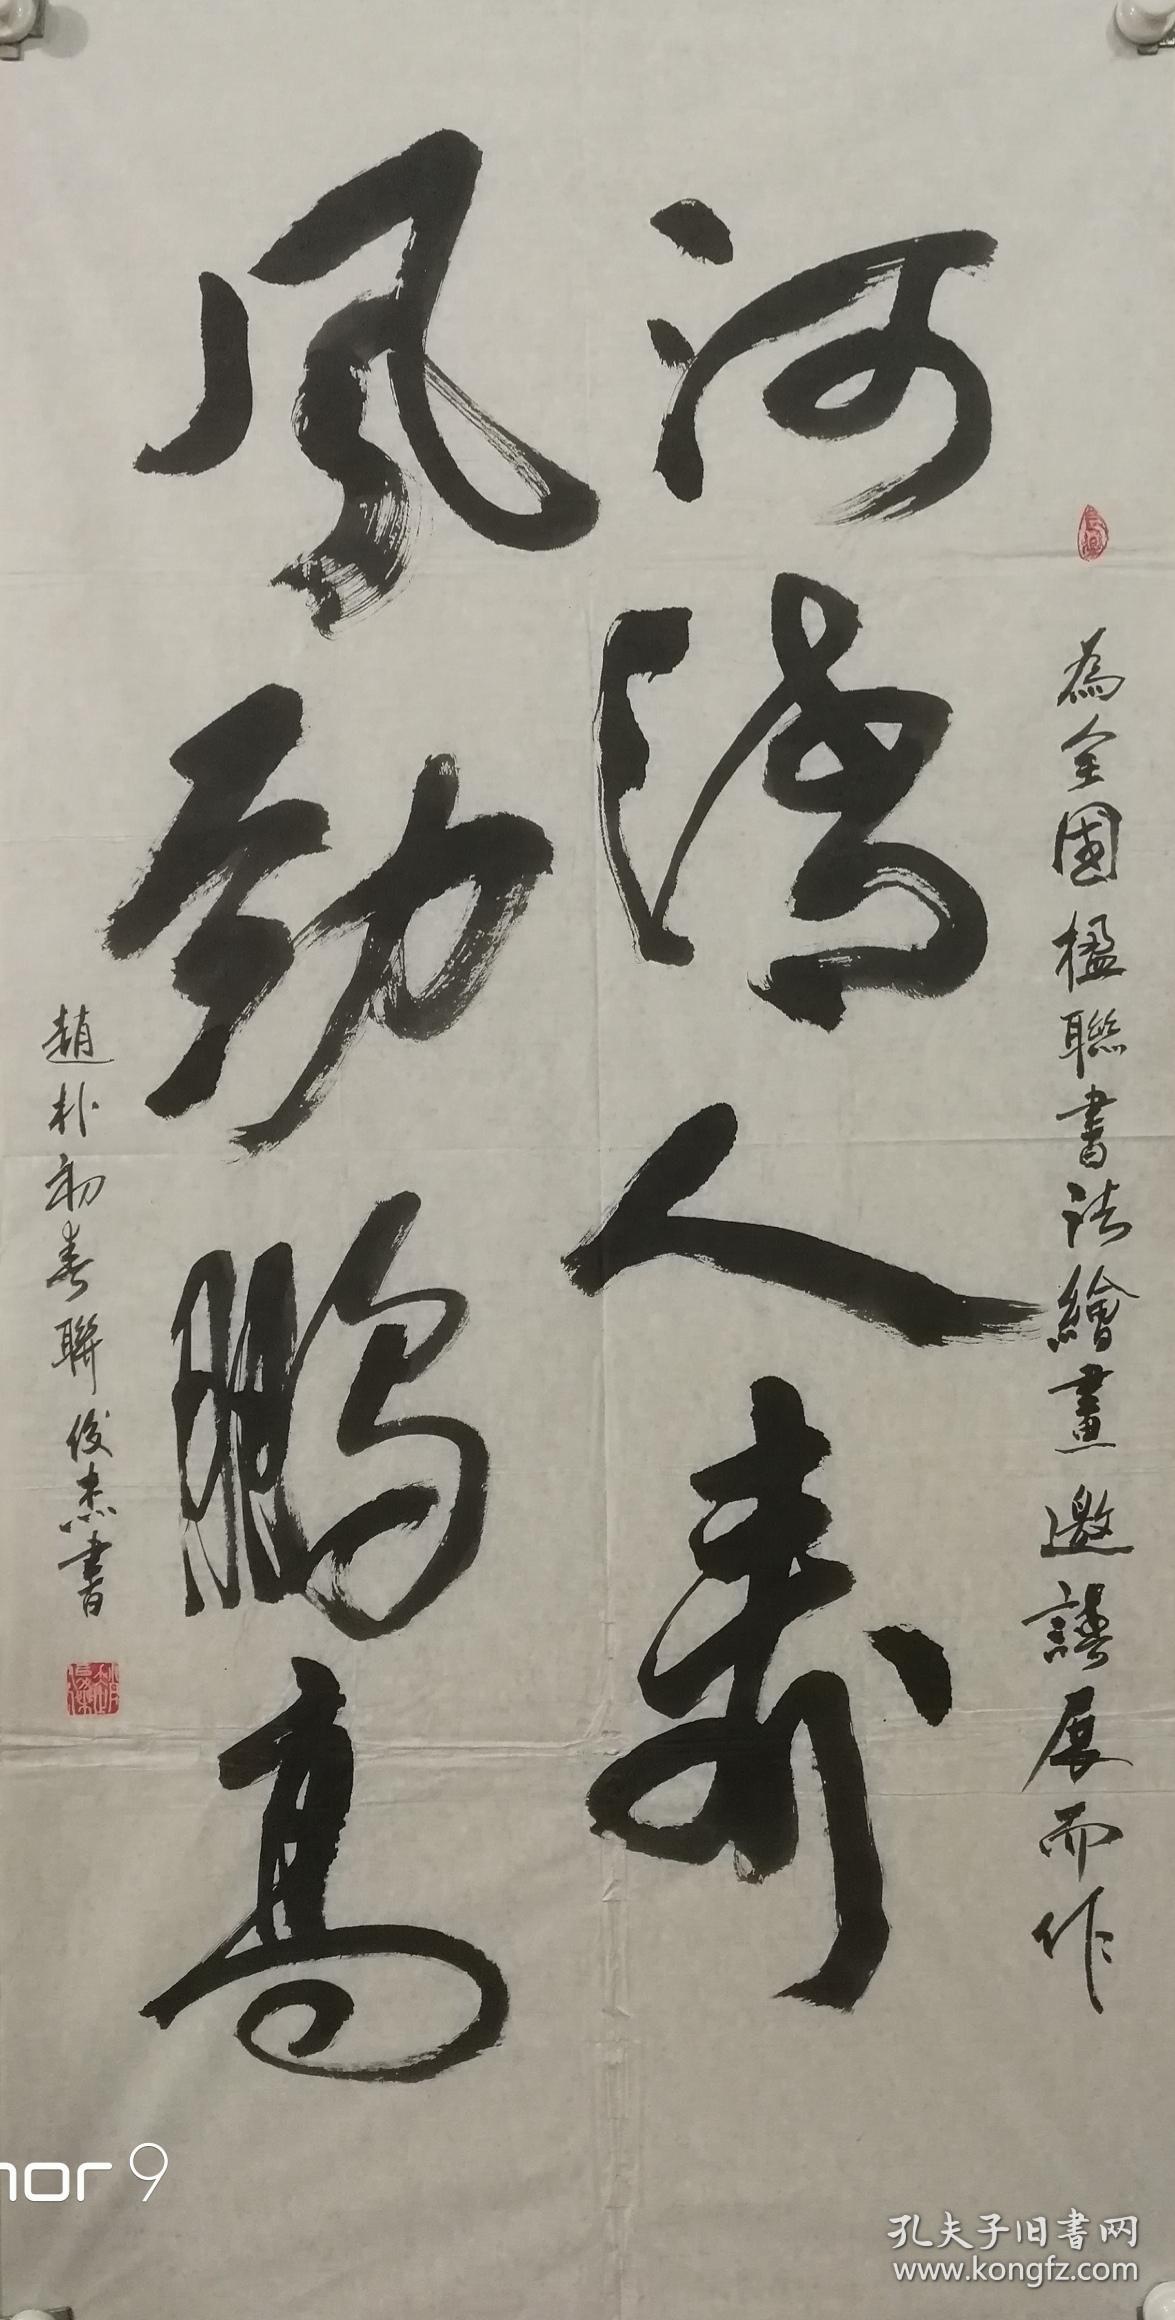 為全國楹聯書法繪畫邀請展而作
河清人壽
風勁鵬高
趙朴初春聯俊杰書
nor 9
孔夫子旧书网
www.kongfz.com